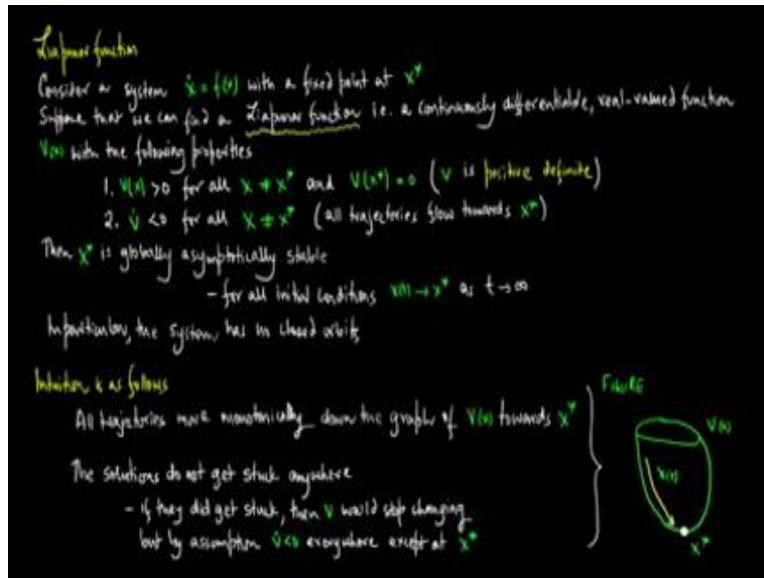 Liapunov function
Consider a system ẋ = f(x) with a fixed point at x*
Suppose that we can find a Liapunov function i.e. a continuously differentiable, real-valued function
V(x) with the following properties
1. V(x) > 0 for all x ≠ x* and V(x*) = 0 (V is positive definite)
2. V̇ < 0 for all x ≠ x* (all trajectories flow towards x*)
Then x* is globally asymptotically stable
- for all initial conditions x(t) → x* as t → ∞
In particular, the system has no closed orbits
Intuition is as follows
All trajectories move monotonically down the graph of V(x) towards x*
The solutions do not get stuck anywhere
- if they did get stuck, then V would stop changing
but by assumption V̇ < 0 everywhere except at x*
FIGURE
V(x)
x(t)
x*